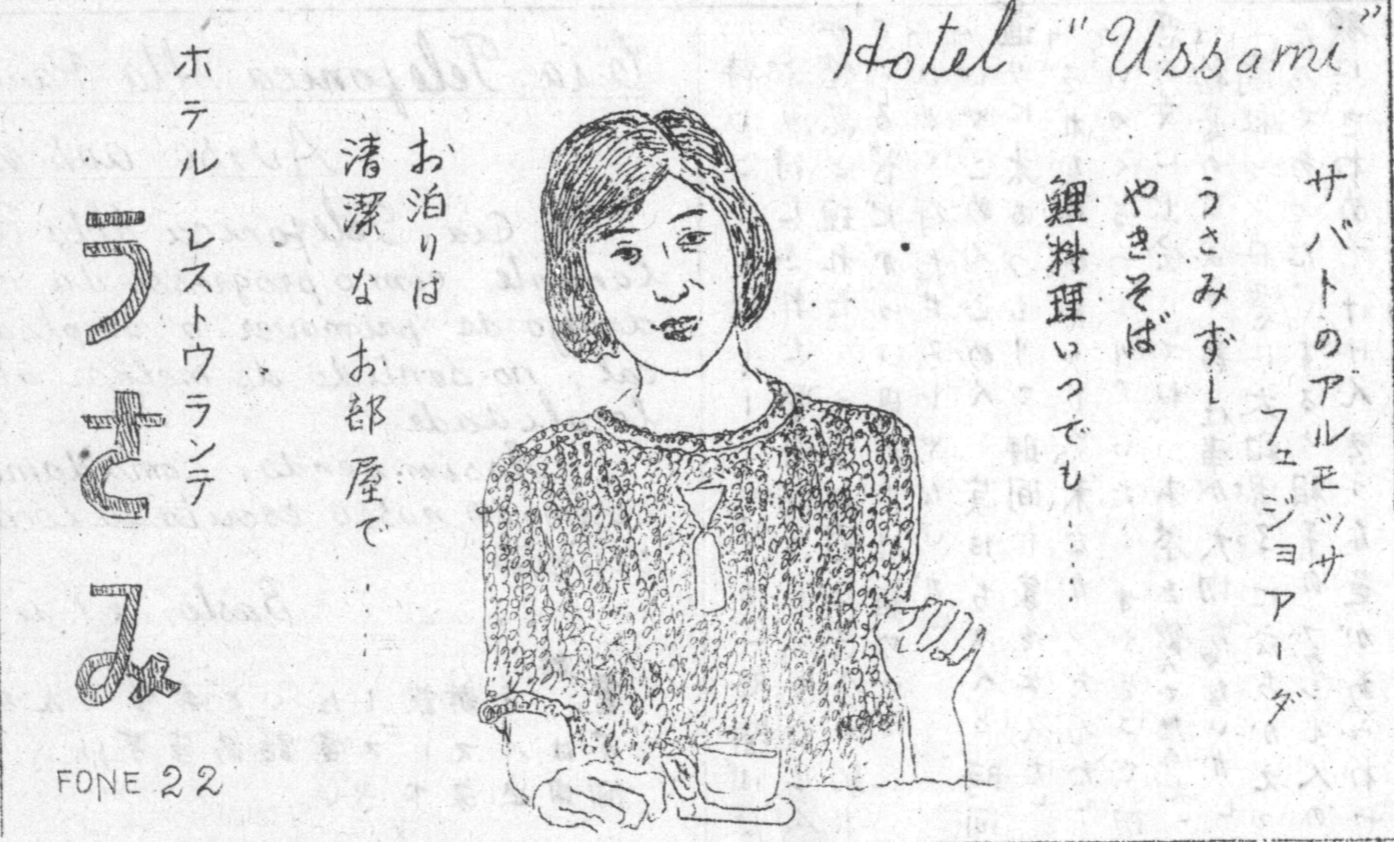 Hotel "Ussami"
サバトのアルモッサ
フェジョアーダ
うさみずし
やきそば
鯉料理いつでも…
お泊りは
清潔なお部屋で……
ホテル レストウランテ
うさみ
FONE 22